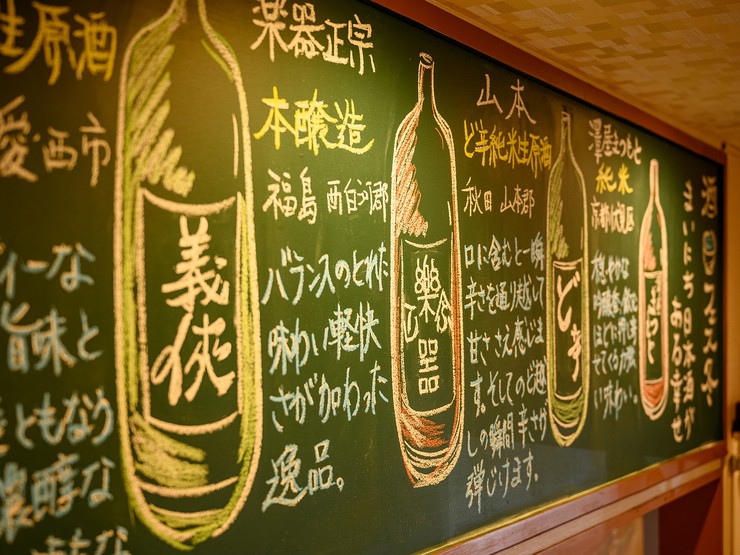 生原酒
愛西市
ィーな
旨味と
ともなう
濃醇な
義侠
楽器正宗
本醸造
福島 西白河郷
バランスのとれた
味わい軽快
さが加わった
逸品。
樂器
山本
ど辛純米生原酒
秋田 山本郡
口に含むと一瞬
辛さを通り越して
甘ささえ感じま
す。そしてのど越
しの瞬間辛さが
弾じけます。
ど辛
澤屋まつもと
純米
京都
穏やかな
味わい。
まいにち日本酒が
ある幸せ